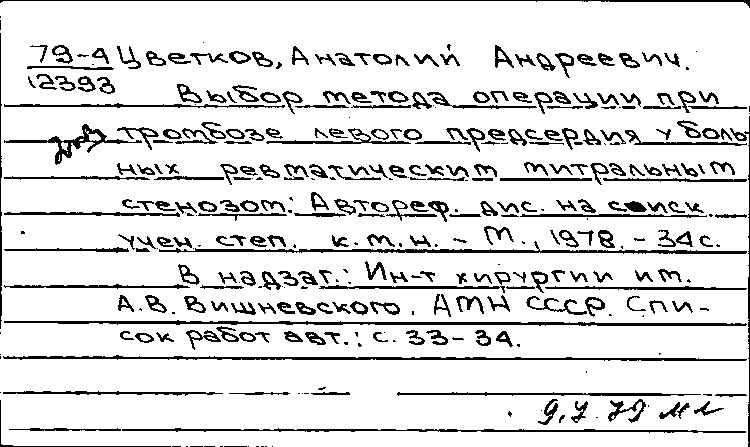 79-4 Цветков, Анатолий Андреевич.
12393 Выбор метода операции при
тромбозе левого предсердия у боль-
ных ревматическим митральным
стенозом: Автореф. дис. на соиск.
учен. степ. к.м.н. - М., 1978. - 34 с.
В надзаг.: Ин-т хирургии им.
А.В. Вишневского. АМН СССР. Спи-
сок работ авт.: с. 33-34.